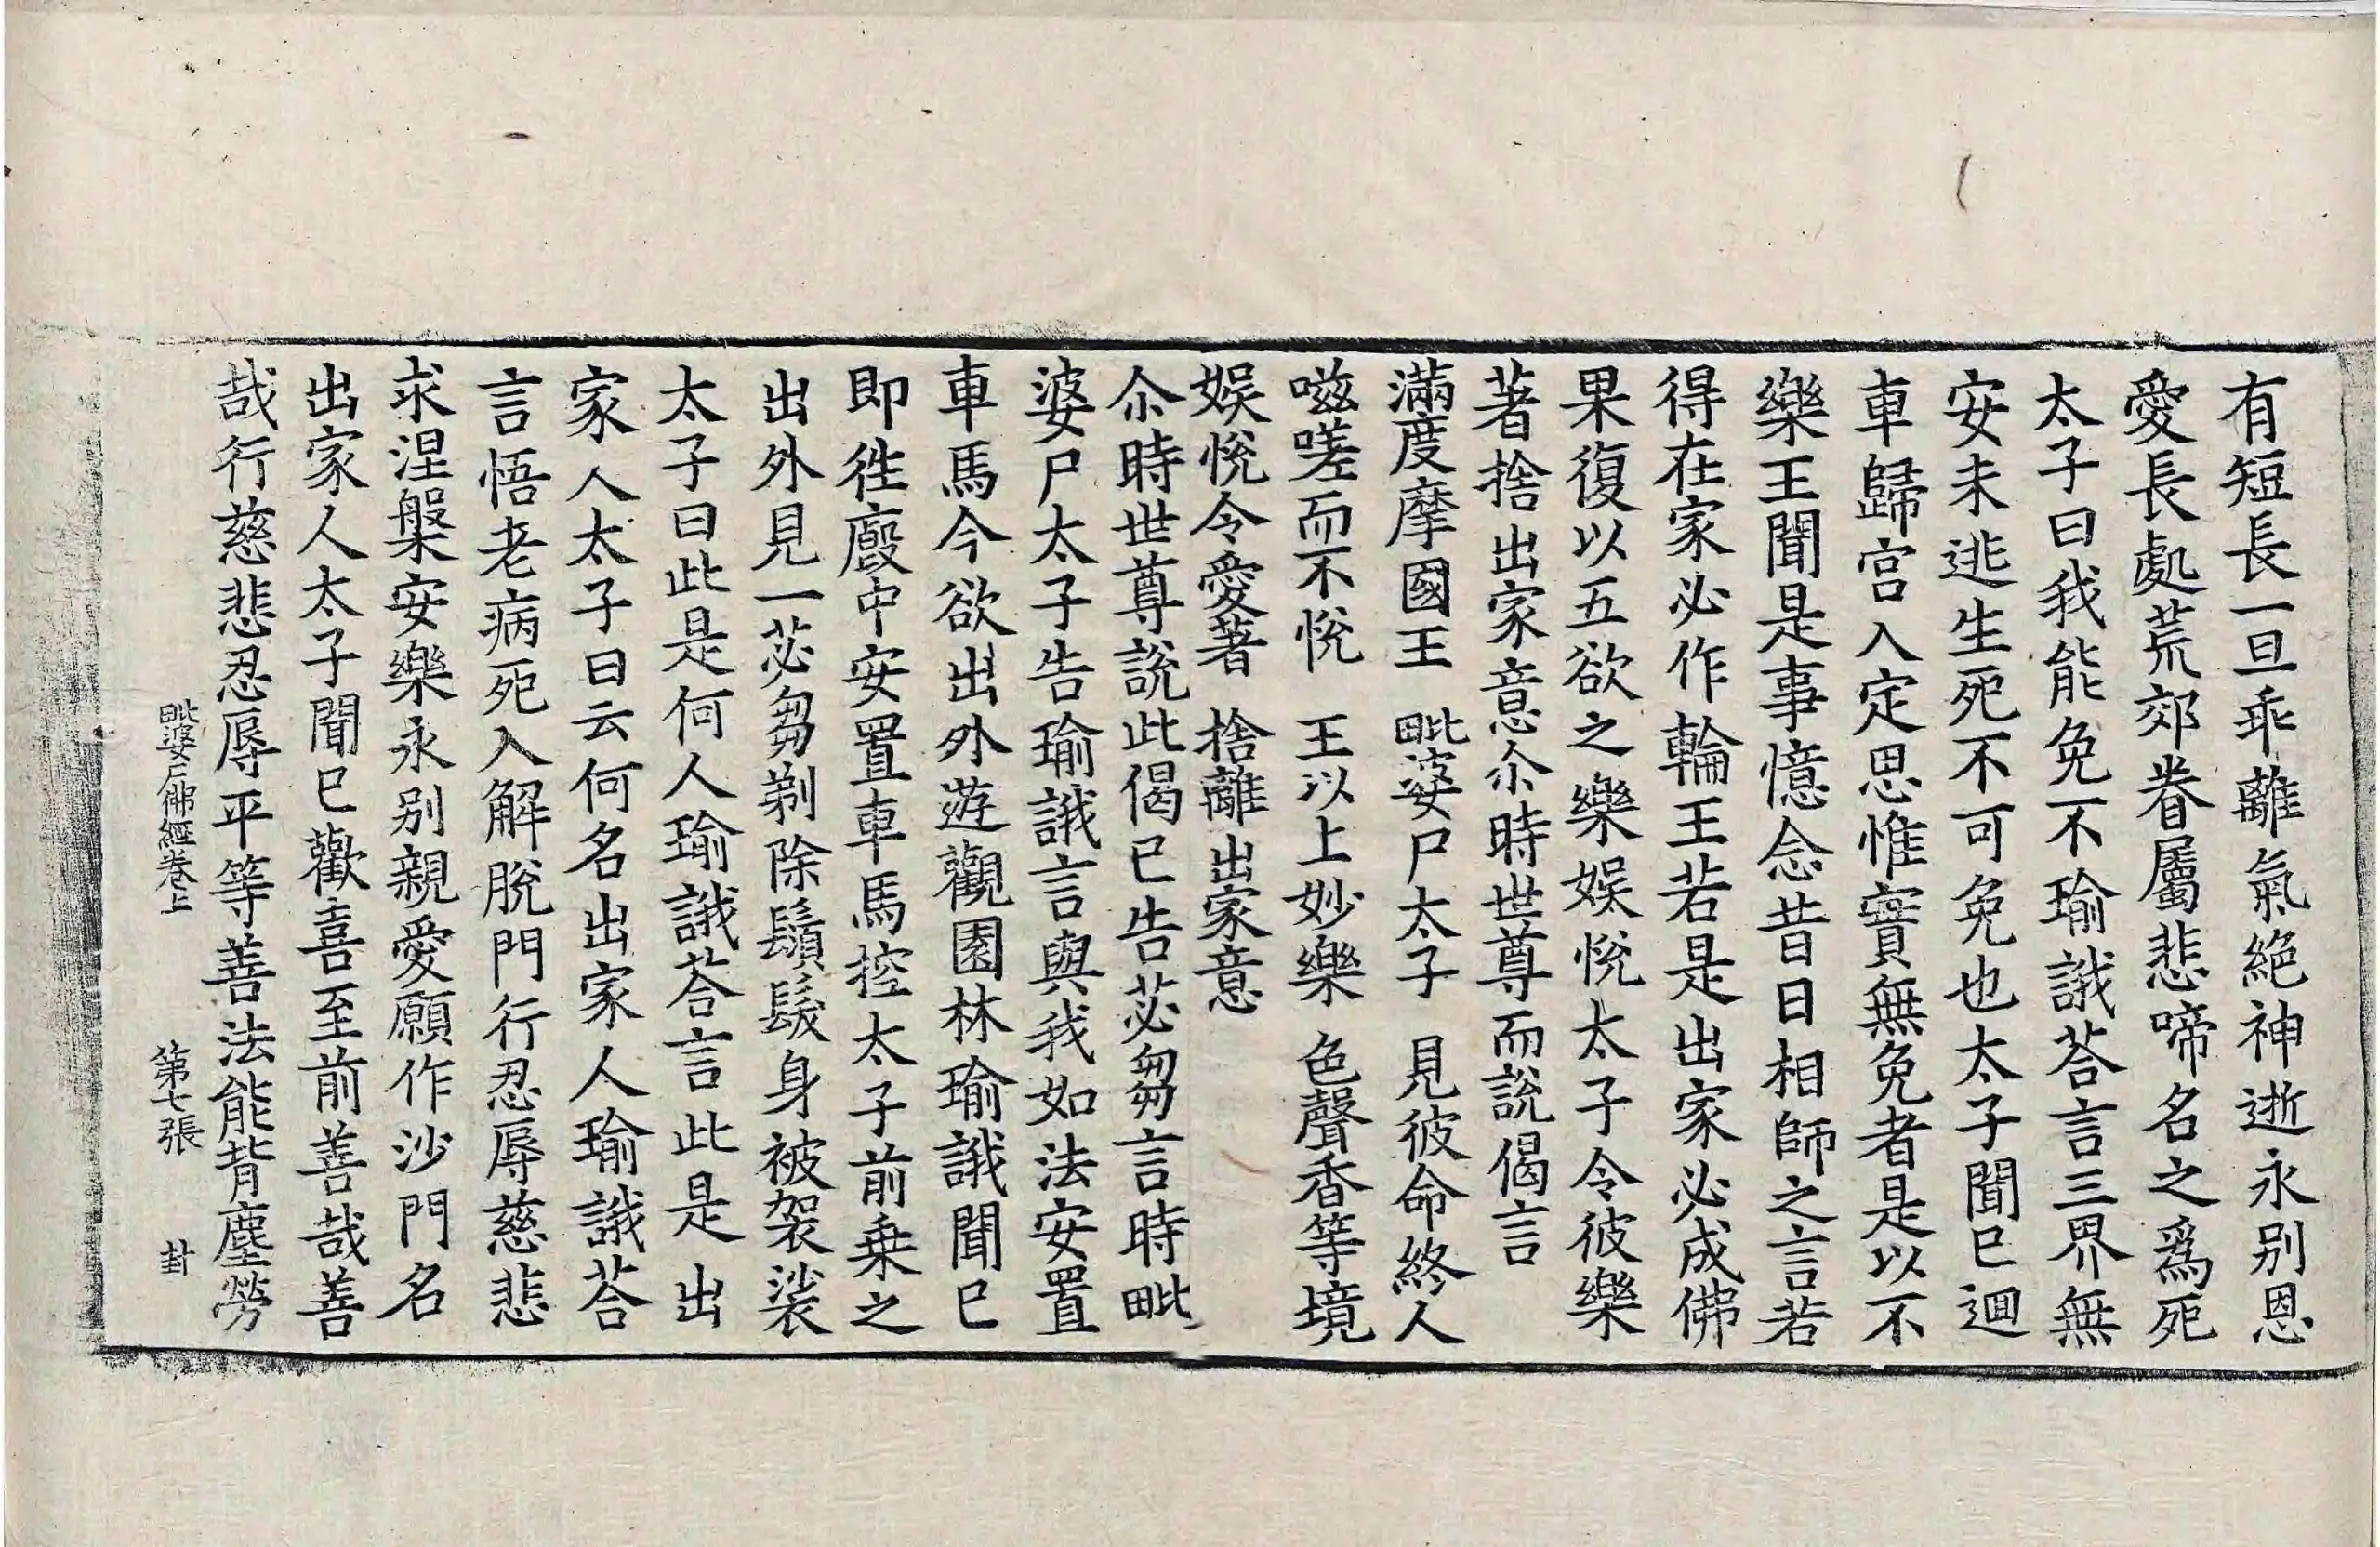 有短長一旦乖離氣絶神逝永别恩
愛長處荒郊眷屬悲啼名之爲死
太子曰我能免不瑜誐荅言三界無
安未逃生死不可免也太子聞已迴
車歸宫入定思惟實無免者是以不
樂王聞是事憶念昔日相師之言若
得在家必作輪王若是出家必成佛
果復以五欲之樂娱悅太子令彼樂
著捨出家意尒時世尊而説偈言
滿度摩國王 毗婆尸太子 見彼命終人
嗞嗟而不悅 王以上妙樂 色聲香等境
娱悅令愛著 捨離出家意
尒時世尊説此偈已告苾芻言時毗
婆尸太子告瑜誐言與我如法安置
車馬今欲出外遊觀園林瑜誐聞已
即徃廄中安置車馬控太子前乗之
出外見一苾芻剃除鬚髮身被袈裟
太子曰此是何人瑜誐荅言此是出
家人太子曰云何名出家人瑜誐荅
言悟老病死入解脱門行忍辱慈悲
求涅槃安樂永别親愛願作沙門名
出家人太子聞已歡喜至前善哉善
哉行慈悲忍辱平等善法能背塵勞
毗婆尸佛經卷上 第七張 封